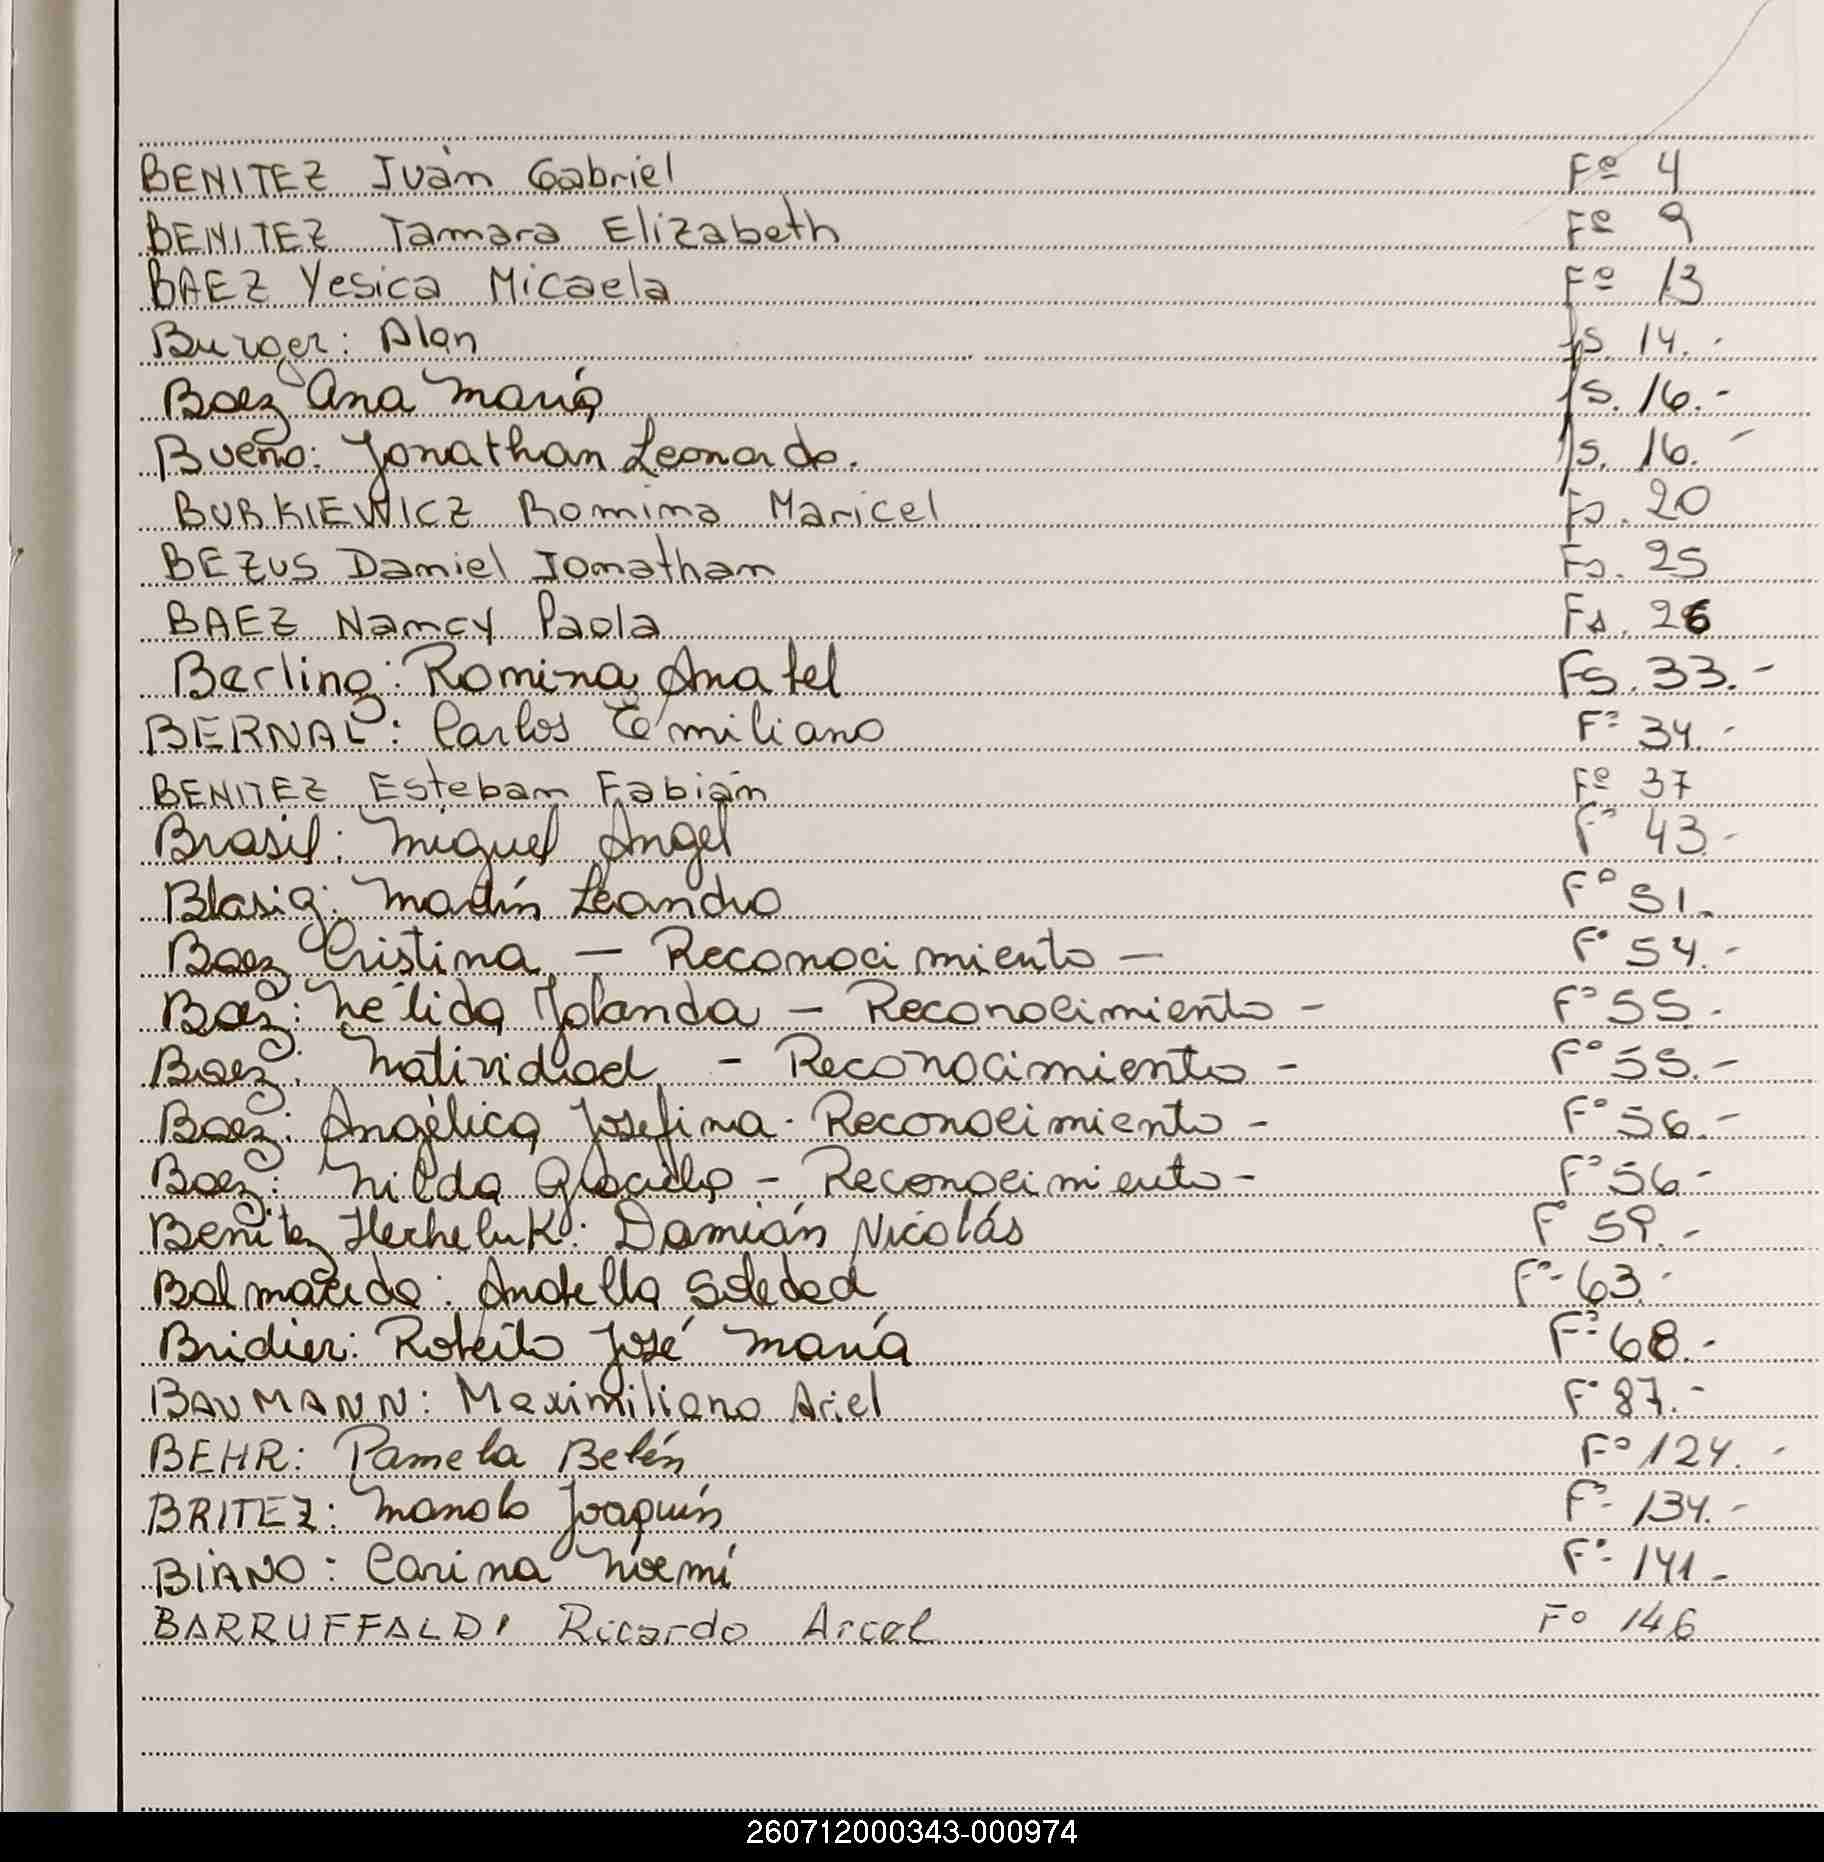 BENITEZ Iván Gabriel Fº 4
BENITEZ Tamara Elizabeth Fº 9
BAEZ Yesica Micaela Fº 13
Burger: Alan fs. 14.-
Baez Ana María fs. 16.-
Bueno: Jonathan Leonardo. fs. 16.-
BURKIEWICZ Romina Maricel Fs. 20
BEZUS Daniel Jonathan Fs. 25
BAEZ Nancy Paola Fs. 26
Berling: Romina Anatel Fs. 33.-
BERNAL: Carlos Emiliano Fº 34.-
BENITEZ Esteban Fabián Fº 37
Brasil: Miguel Angel Fº 43.-
Blasig: Martín Leandro Fº 51.
Baez Cristina - Reconocimiento - Fº 54.-
Baez: Nélida Yolanda - Reconocimiento - Fº 55.-
Baez: Natividad - Reconocimiento - Fº 55.-
Baez: Angélica Josefina - Reconocimiento - Fº 56.-
Baez: Nilda Graciela - Reconocimiento - Fº 56-
Benitez Herheluk: Damián Nicolás Fº 59.-
Balmaceda: Soledad Fº 63.-
Bridier: Roberto José María Fº 68.-
BAUMANN: Maximiliano Ariel Fº 87.-
BEHR: Pamela Belén Fº 124.-
BRITEZ: Manolo Joaquín Fº 134.-
BIANO: Carina Noemí Fº 141.-
BARRUFFALDI Ricardo Arcel Fº 146
260712000343-000974